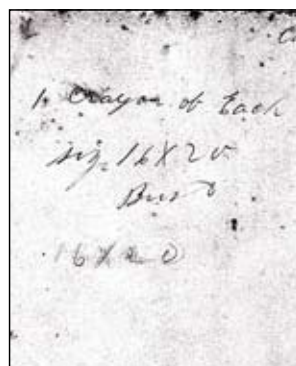 1 Crayon of Each
siz. 16 X 20
Bust
16 X 20